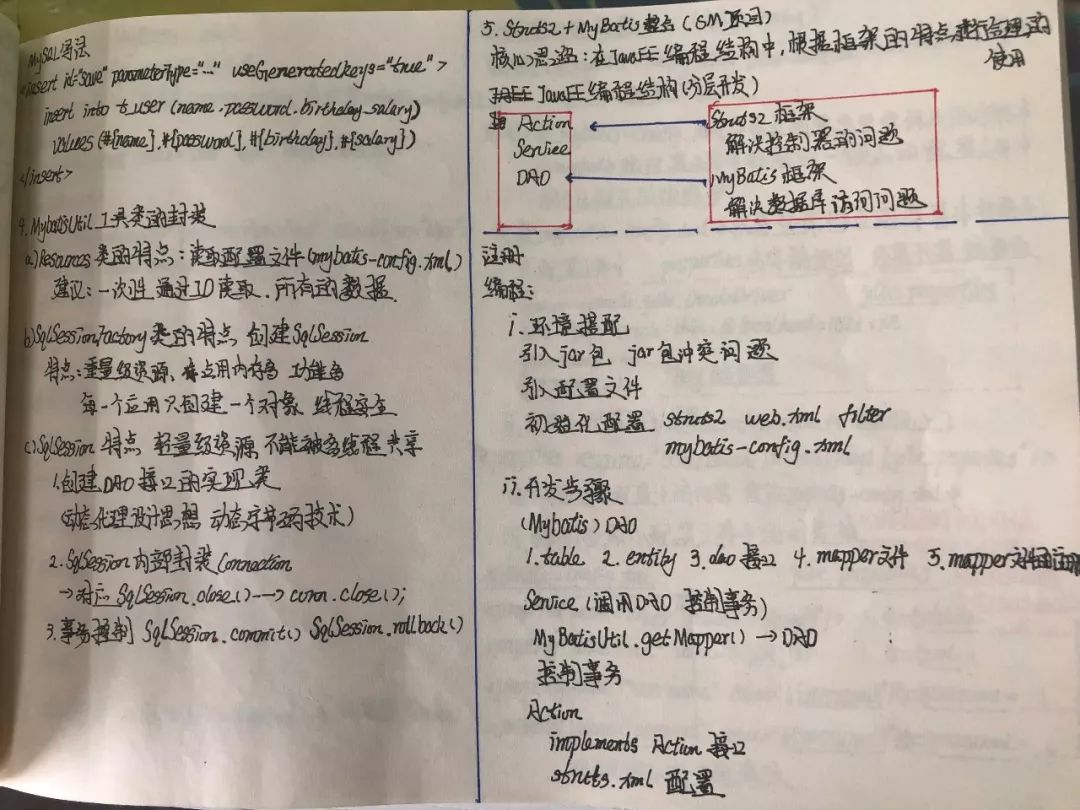 MySQL写法
<insert id="save" parameterType="..." useGeneratedkeys="true">
insert into t_user (name.password.birthday.salary)
values (#{name}.#{password}.#{birthday}.#{salary})
</insert>
4.MybatisUtil工具类的封装
a)Resources类的特点：读取配置文件(mybatis-config.xml)
建议：一次性通过IO读取.所有的数据.
b)SqlSessionFactory类的特点 创建SqlSession
特点：重量级资源 占用内存多 功能多
每一个应用只创建一个对象 线程安全
c)SqlSession特点 轻量级资源 不能被多线程共享
1.创建DAO接口的实现类
(动态代理设计思想 动态字节码技术)
2.SqlSession内部封装Connection
→对应SqlSession.close()→conn.close();
3.事务控制 SqlSession.commit() SqlSession.rollback()
5.Struts2+MyBatis整合(SM项目)
核心思路：在JavaEE编程结构中，根据框架的特点进行合理的
使用
JavaEE编程结构(分层开发)
Action
Service
DAO
Struts2框架
解决控制器的问题
MyBatis框架
解决数据库访问问题
注册
编程：
i.环境搭配
引入jar包 jar包冲突问题
引入配置文件
初始化配置 struts2 web.xml filter
mybatis-config.xml
ii.开发步骤
(Mybatis)DAO
1.table 2.entity 3.dao接口 4.mapper文件 5.mapper文件的注册
Service(调用DAO 控制事务)
MyBatisUtil.getMapper()→DAO
控制事务
Action
implements Action接口
struts.xml 配置